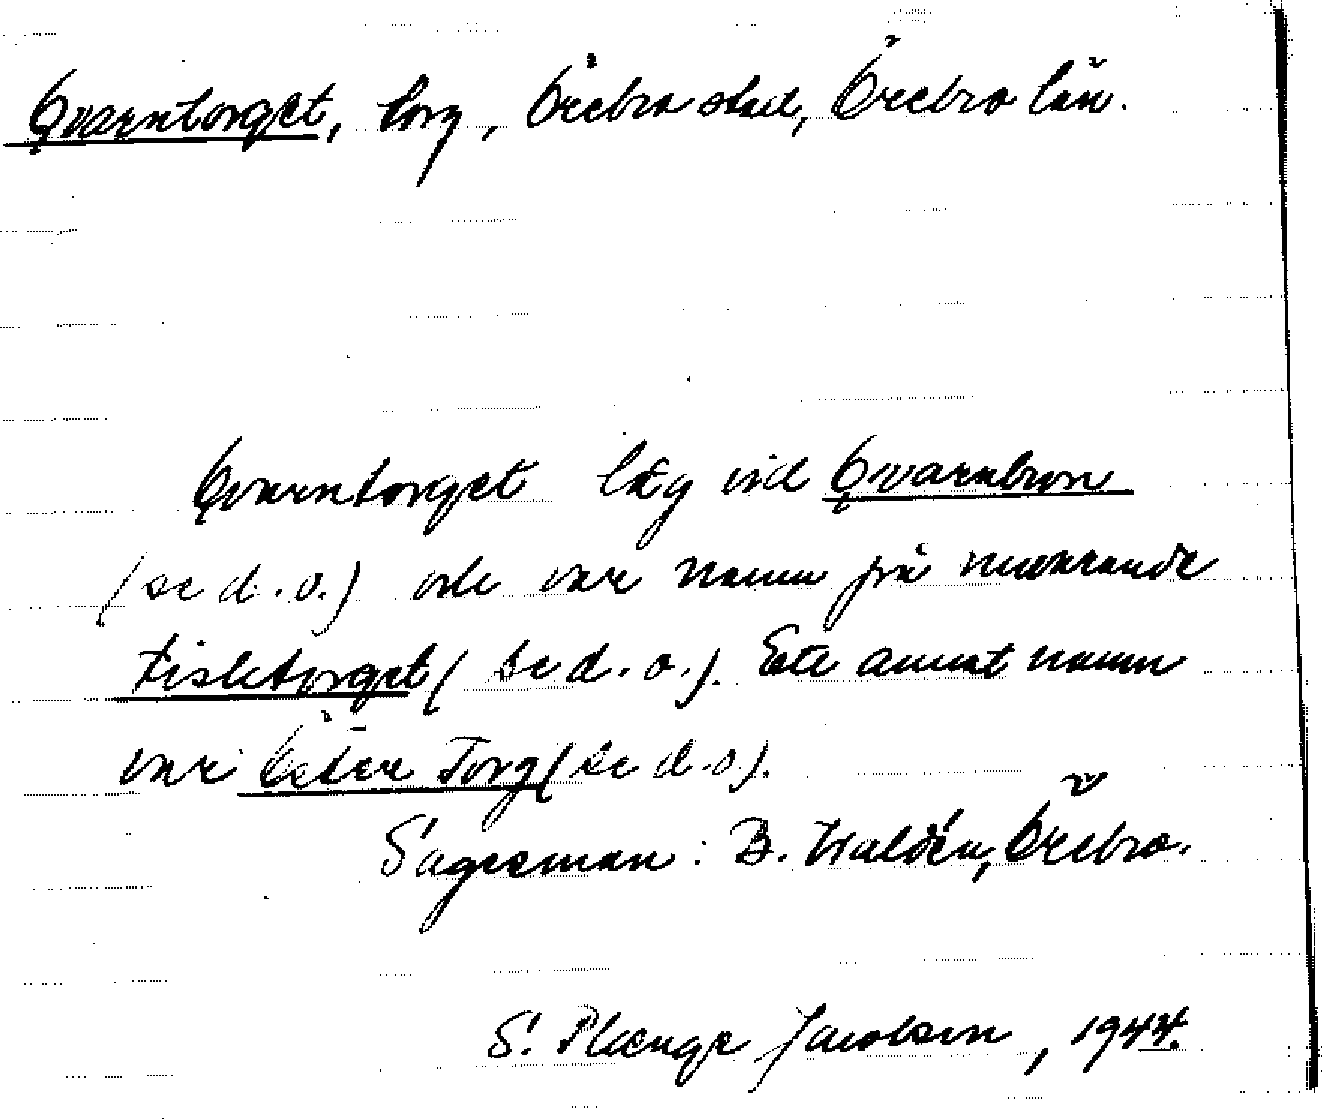 Qvarntorget, torg, Örebro stad, Örebro län.
Qvarntorget låg vid Qvarnbron
(se d.o.) och var namn på nuvarande
Fisketorget (se d.o.). Ett annat namn
var Öster Torg (se d.o.).
Sagesman: B. Waldén, Örebro.
S. Plænge Jacobson, 1944.